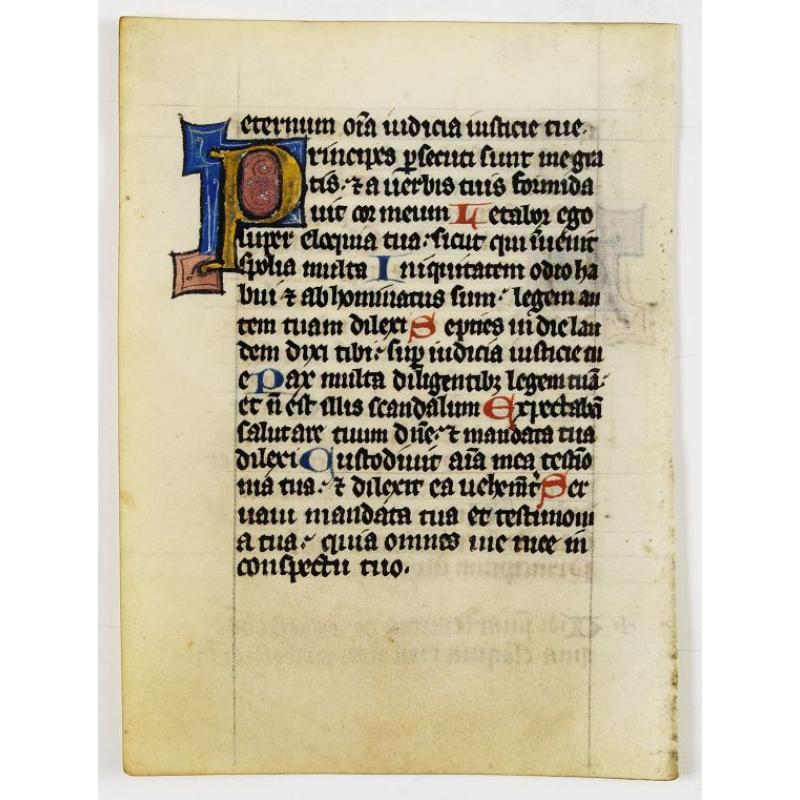 eternum oīa iudicia iusticie tue.
Principes ꝑsecuti sunt me gra
tis. ⁊ a uerbis tuis formida
uit cor meum Letabor ego
super eloquia tua. sicut qui īuenit
spolia multa Iniquitatem odio ha
bui ⁊ abhominatus sum. legem au
tem tuam dilexi Septies in die lau
dem dixi tibi. suꝑ iudicia iusticie tu
e Pax multa diligentibꝫ legem tuā.
et n̄ est illis scandalum Expectabā
salutare tuum dn̄e. ⁊ mandata tua
dilexi Custodiuit aīa mea testīo
nia tua. ⁊ dilexit ea uehemt̄ Ser
uaui mandata tua et testimoni
a tua. quia omnes uie mee in
conspectu tuo.